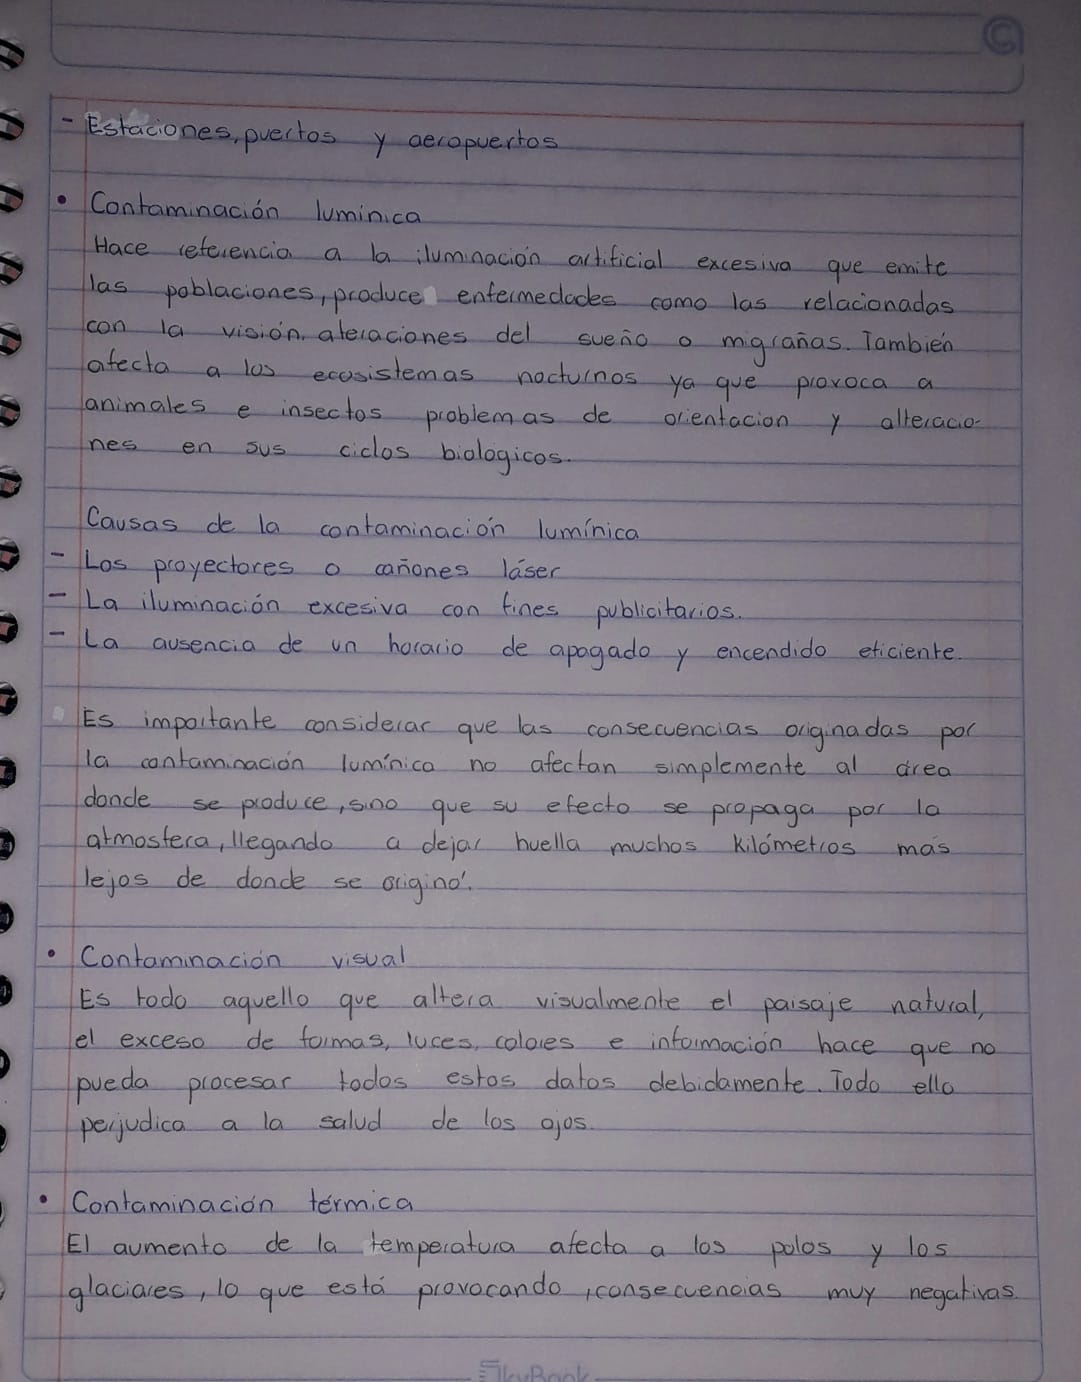 - Estaciones, puertos y aeropuertos
• Contaminación lumínica
Hace referencia a la iluminación artificial excesiva que emite
las poblaciones, produce enfermedades como las relacionadas
con la visión, ateraciones del sueño o migrañas. También
afecta a los ecosistemas nocturnos ya que provoca a
animales e insectos problemas de orientacion y alteracio-
nes en sus ciclos biologicos.
Causas de la contaminación lumínica
- Los proyectores o cañones láser
- La iluminación excesiva con fines publicitarios.
- La ausencia de un horario de apagado y encendido eficiente.
Es importante considerar que las consecuencias originadas por
la contaminación lumínica no afectan simplemente al área
donde se produce, sino que su efecto se propaga por la
atmosfera, llegando a dejar huella muchos Kilómetros más
lejos de donde se originó.
• Contaminación visual
Es todo aquello que altera visualmente el paisaje natural,
el exceso de formas, luces, colores e información hace que no
pueda procesar todos estos datos debidamente. Todo ello
perjudica a la salud de los ojos.
• Contaminación térmica
El aumento de la temperatura afecta a los polos y los
glaciares, lo que está provocando, consecuencias muy negativas.
SkyBook